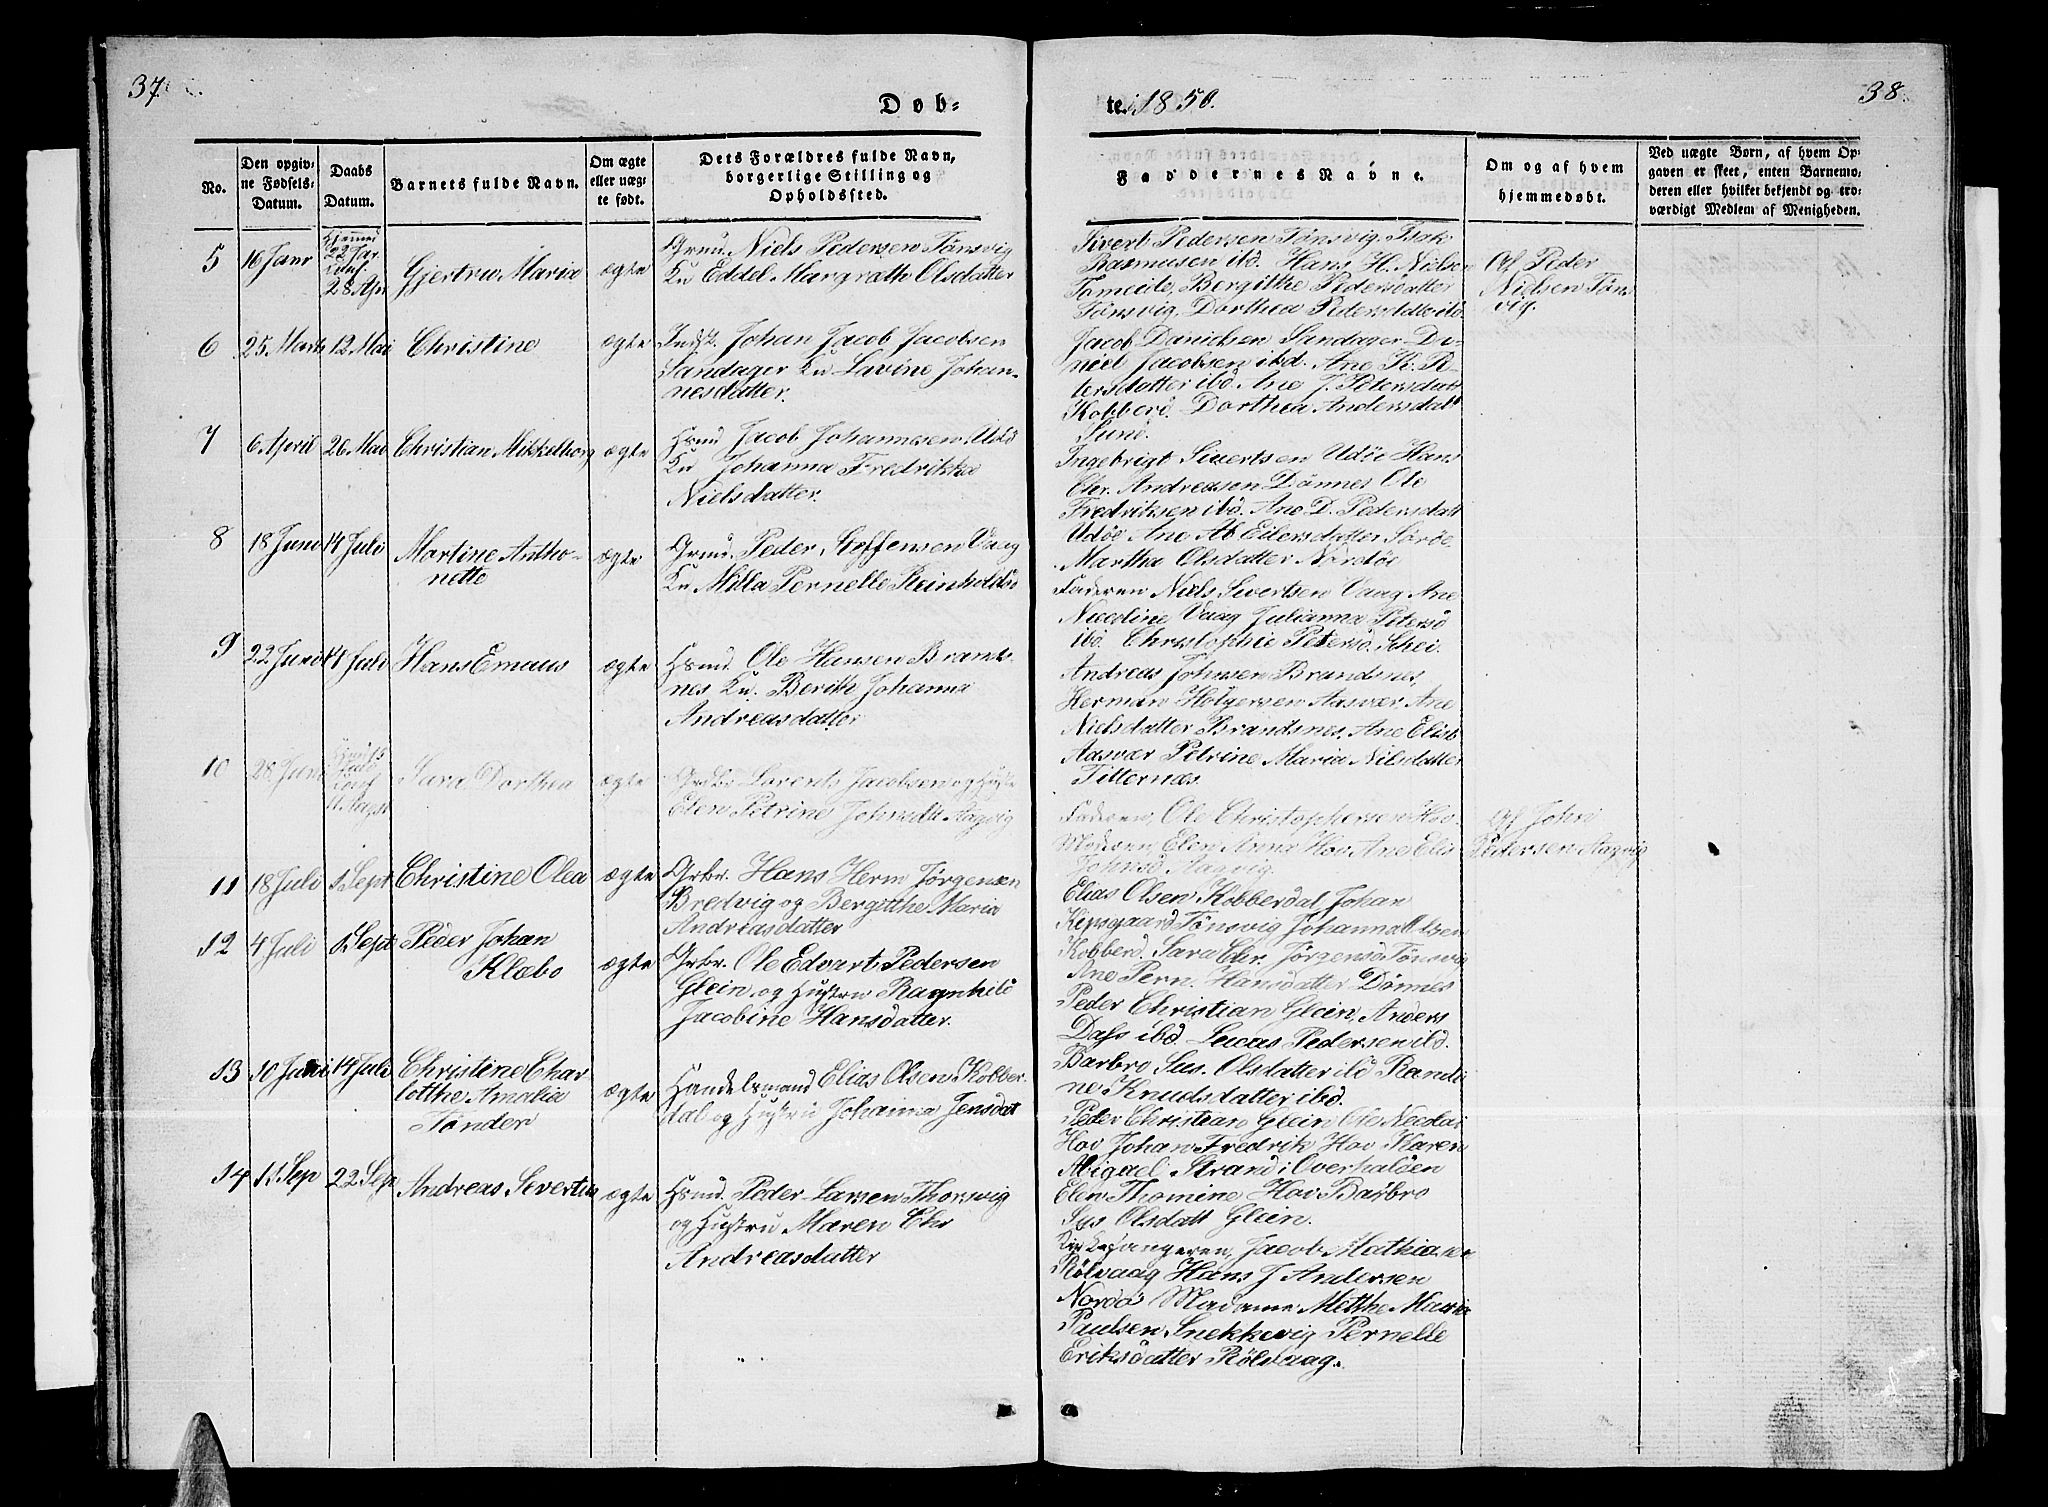 37.
Døb-
te. 1850.
38.
No.
Den opgiv-
ne Fødsels-
Datum.
Daabs
Datum.
Barnets fulde Navn.
Om ægte
eller uæg-
te født.
Dets Forældres fulde Navn,
borgerlige Stilling og
Opholdssted.
Faddernes Navne.
Om og af hvem
hjemmedøbt.
Ved uægte Børn, af hvem Op-
gaven er skeet, enten Barnemo-
deren eller hvilket bekjendt og tro-
værdigt Medlem af Menigheden.
5
16 Janr
22 Jar
28 Apr
Gjertru Maria
ægte
Grmd. Niels Pedersen Tönsvig
Ku Eddel Margrath Olsdatter
Sivert Pedersen Tönsvig. Isak
Rasmusen ibd. Hans H. Nielsen
Tomeide, Bergithe Pedersdatter
Tönsvig. Dorthea Pedersdatte ibd.
Af Peder
Nielsen Töns
vig.
6
25 Marts
12 Mai
Christine
ægte
Indst. Johan Jacob Jacobsen
Sandager Ku Lavine Johan-
nesdatter.
Jacob Danielsen Sandager Da-
niel Jacobsen ibd. Ane K. Pe-
tersdatter ibd. Ane J. Petersdatt
Kobberd. Dorthea Andersdatt
Sund.
7
6 April
26 Mai
Christian Mikkelborg
ægte
Hsmd Jacob Johannesen Udö
Ku Johanna Fredrikka
Nielsdatter.
Ingebrigt Sivertsen Udöe Hans
Chr. Andreasen Dönnes Ole
Fredriksen ibd. Ane D. Pedersdatt
Udöe Ane Ab Eilersdatter Sörøe.
Martha Olsdatter Nordöe
8
18 Juni
14 Juli
Martine Antho-
nette
ægte
Grmd. Peder Steffensen Vaag
Ku Milla Pernelle Reinholdsd
Faderen Niels Sivertsen Vaag Ane
Nicoline Vaag Julianna Petersd
ibd. Christophie Petersd. Skei.
9
22 Juni
14 Juli
Hans Emaus
ægte
Hsmd. Ole Hansen Brands-
nes Ku. Berith Johanna
Andreasdatter
Andreas Johnsen Brandsnes,
Herman Holgersen Aasvær Ane
Nielsdatter Brandsnes, Ane Elisb
Aasvær Petrine Maria Nilsdatter
Titternæs.
10
28 Juni
11 Augst
Sara Dorthea
ægte
Grdbr Lorents Jacobsen og Hustr
Elen Petrine Johnsdtt Aagvig
Faderen, Ole Christophersen Hov.
Moderen, Elen Anna Hov Ane Elis
Johnsd Aagvig.
Af John
Pedersen Aagvig
11
18 Juli
1 Sept
Christine Olea
ægte
Grbr. Hans Herm Jörgensen
Bredvig og Bergitthe Maria
Andreasdatter
Elias Olsen Kobberdal, Johan
Kipsgaard Tönsvig Johanna Olsen
Kobberd. Sara Chr. Jörgensd Tönsvig
Ane Pern. Hansdatter Dönnes
12
4 Juli
1 Sept
Peder Johan
Klæbo
ægte
Grbr. Ole Edvart Pedersen
Glein, og Hustru Ragnhild
Jacobine Hansdatter.
Peder Christian Glein, Anders
Dass ibd Lucas Pedersen ibd.
Barbro Sus. Olsdatter ibd Randi
ne Knudsdatter ibd.
13
10 Juni
14 Juli
Christine Char
lotthe Amalia
Tönder
ægte
Handelsmand Elias Olsen Kobber
dal og Hustru Johanna Jensdat
Peder Christian Glein Ole Nicolai
Hov Johan Fredrik Hov Karen
Abigael Strand i Overhalden
Elen Thomine Hov Barbro
Sus Olsdatt Glein.
14
11 Sep
22 Sep
Andreas Severtin
ægte
Hsmd. Peder Larsen Thorsvig
og Hustru Maren Chr
Andreasdatter
Kirkesangeren, Jacob Mathiasen
Rölvaag Hans J Andersen
Nordö Madame Metthe Maria
Paulsen Snekkevig Pernelle
Eriksdatter Rölvaag.